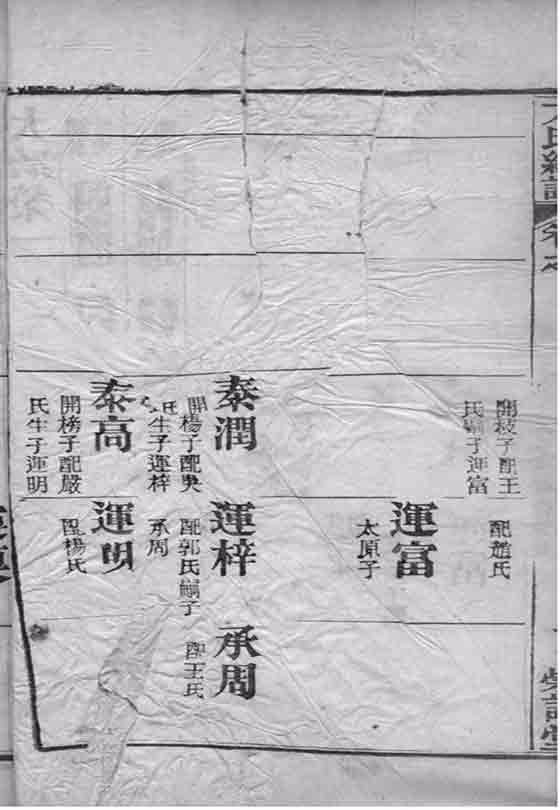 氏
開枝子配王
氏嗣子運富
配趙氏
運富
太原子
泰潤
開楊子配吳
氏生子運梓
運梓
配郭氏嗣子
承周
承周
配王氏
泰高
開榜子配嚴
氏生子運明
運明
配楊氏